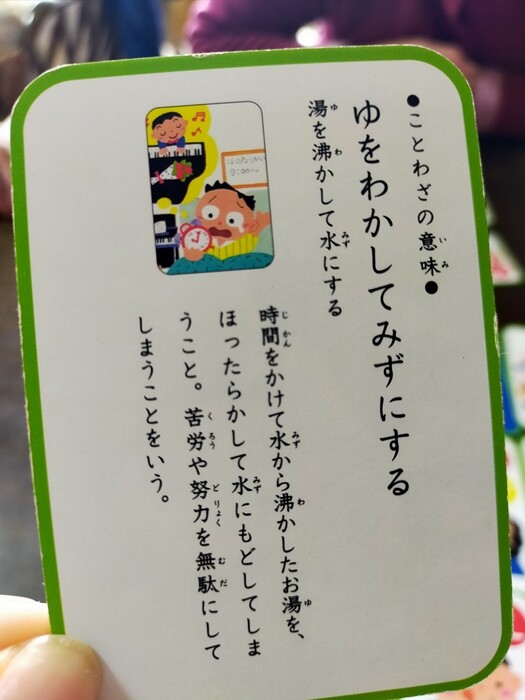 ●ことわざの意味●
ゆをわかしてみずにする
湯を沸かして水にする
時間をかけて水から沸かしたお湯を、
ほったらかして水にもどしてしま
うこと。苦労や努力を無駄にして
しまうことをいう。